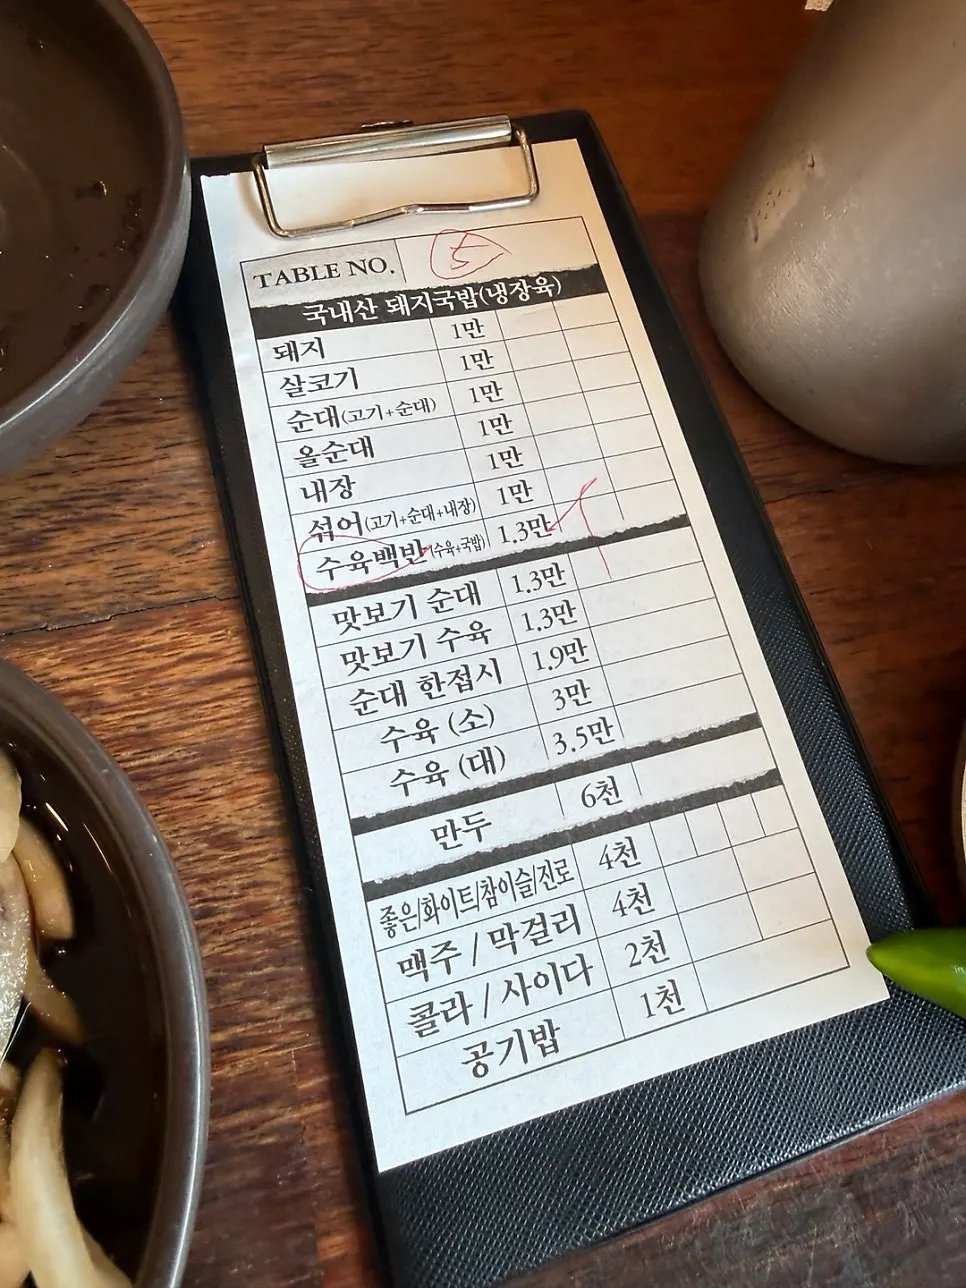 TABLE NO. 5
국내산 돼지국밥(냉장육)
돼지 1만
살코기 1만
순대(고기+순대) 1만
올순대 1만
내장 1만
섞어(고기+순대+내장) 1만
수육백반(수육+국밥) 1.3만
맛보기 순대 1.3만
맛보기 수육 1.3만
순대 한접시 1.9만
수육 (소) 3만
수육 (대) 3.5만
만두 6천
좋은/화이트/참이슬/진로 4천
맥주 / 막걸리 4천
콜라 / 사이다 2천
공기밥 1천